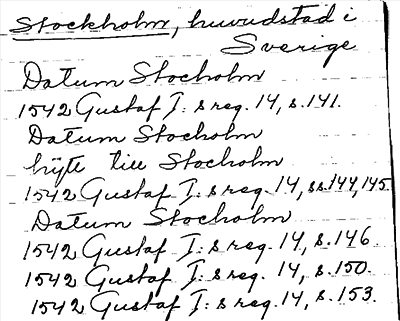 Stockholm, huvudstad i
Sverige
Datum Stocholm
1542 Gustaf I: s reg. 14, s. 141.
Datum Stocholm
hijte till Stocholm
1542 Gustaf I: s reg. 14, ss. 144, 145.
Datum Stocholm
1542 Gustaf I: s reg. 14, s. 146.
1542 Gustaf I: s reg. 14, s. 150.
1542 Gustaf I: s reg. 14, s. 153.